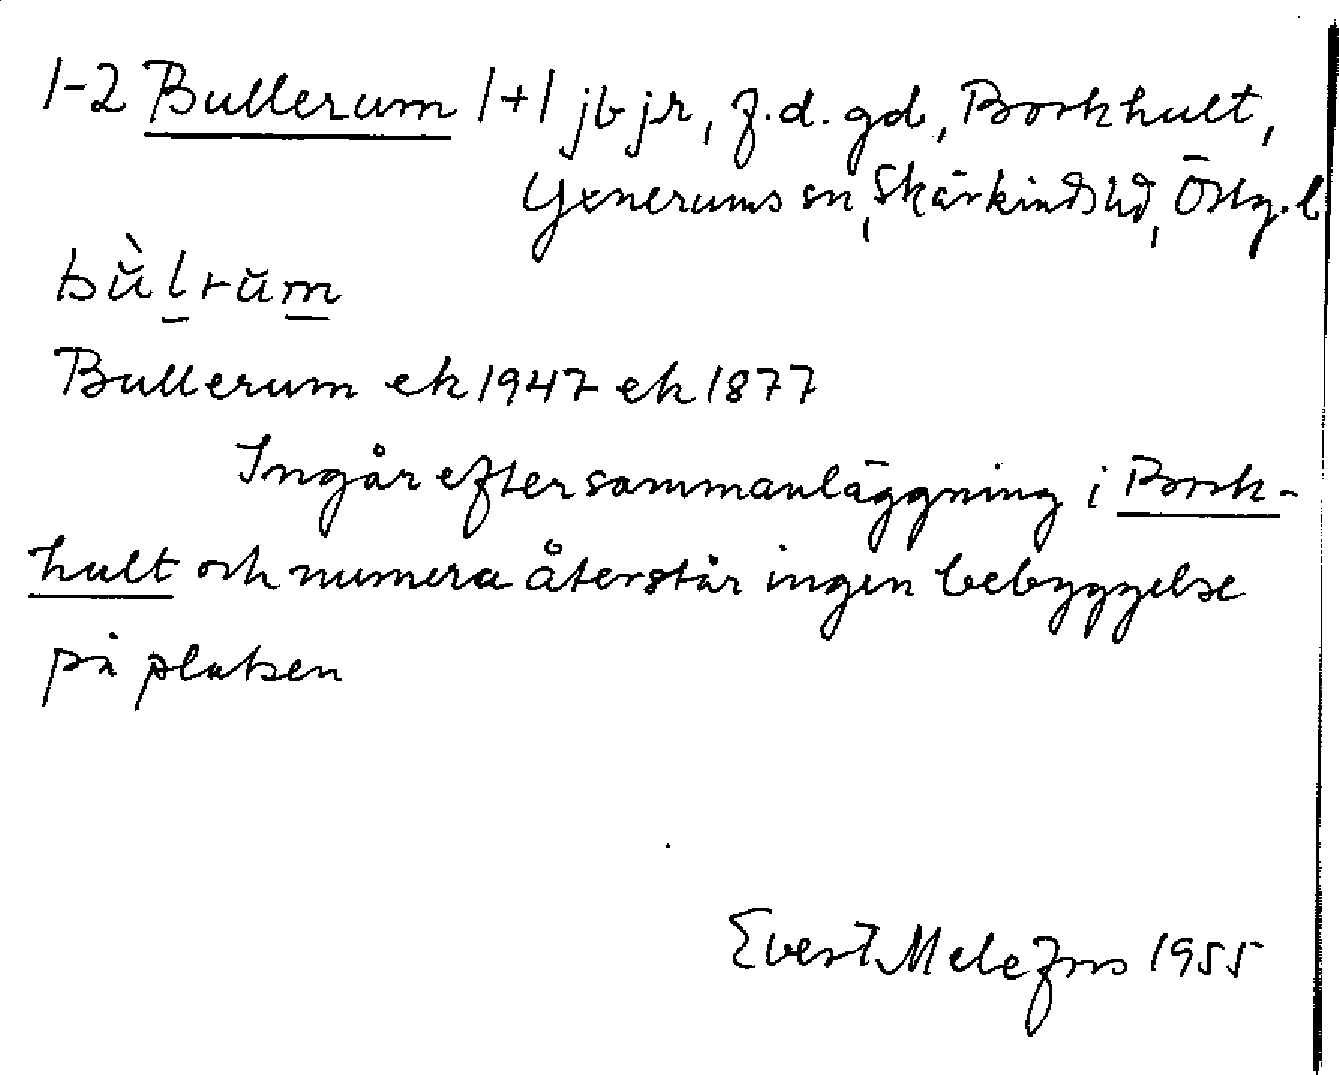 1-2 Bullerum 1+1 jb jr, f.d. gd, Borkhult,
Yxnerums sn, Skärkinds hd, Östg. l
bŭ̀lrŭm
Bullerum ek 1947 ek 1877
Ingår efter sammanläggning i Bork-
hult och numera återstår ingen bebyggelse
på platsen
Evert Melefors 1955